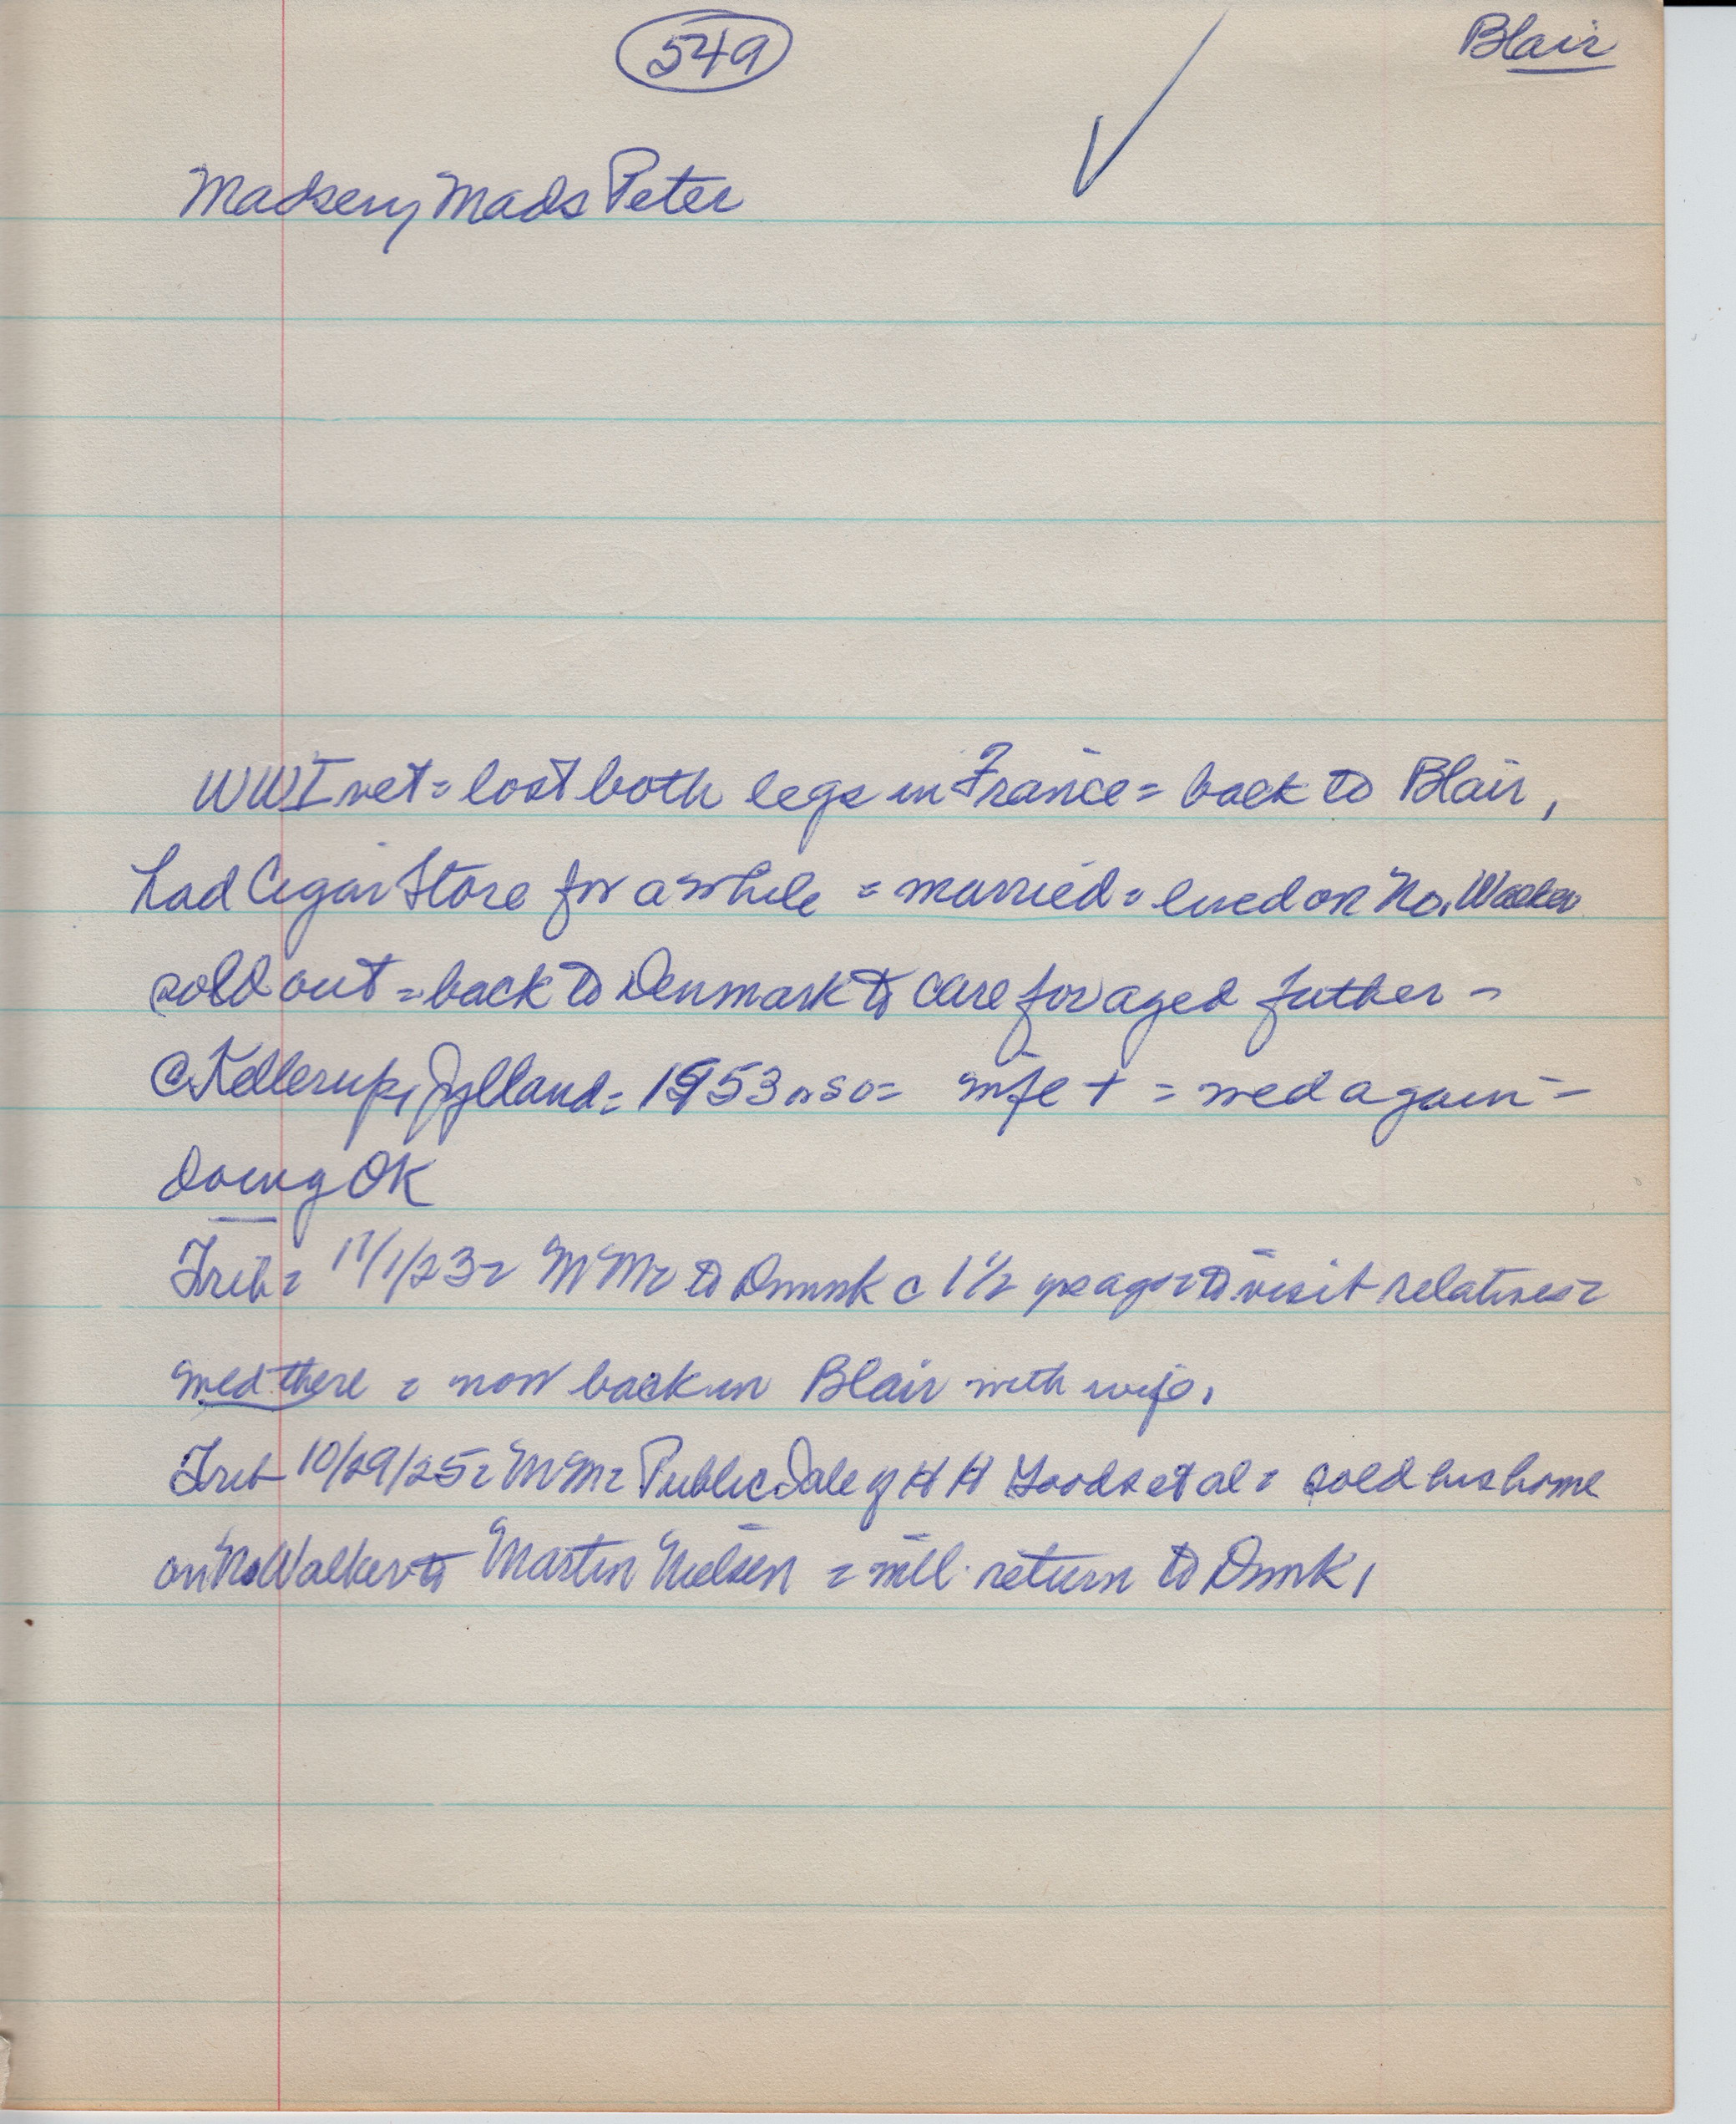 549
Blair
Madsen, Mads Peter
WWI vet = lost both legs in France = back to Blair,
had Cigar Store for awhile = married = lived on No. Walker
sold out = back to Denmark to care for aged father -
c Kellerup, Jylland = 1953 or so = wife + = wed again =
doing OK
Trib = 11/1/23 = MM = to Dnmk c 1 1/2 yrs ago = to visit relatives =
wed there = now back in Blair with wife,
Trib 10/29/25 = MM = Public Sale of H H Goods et al = sold his home
on No Walker to Martin Nielsen = will return to Dnmk,